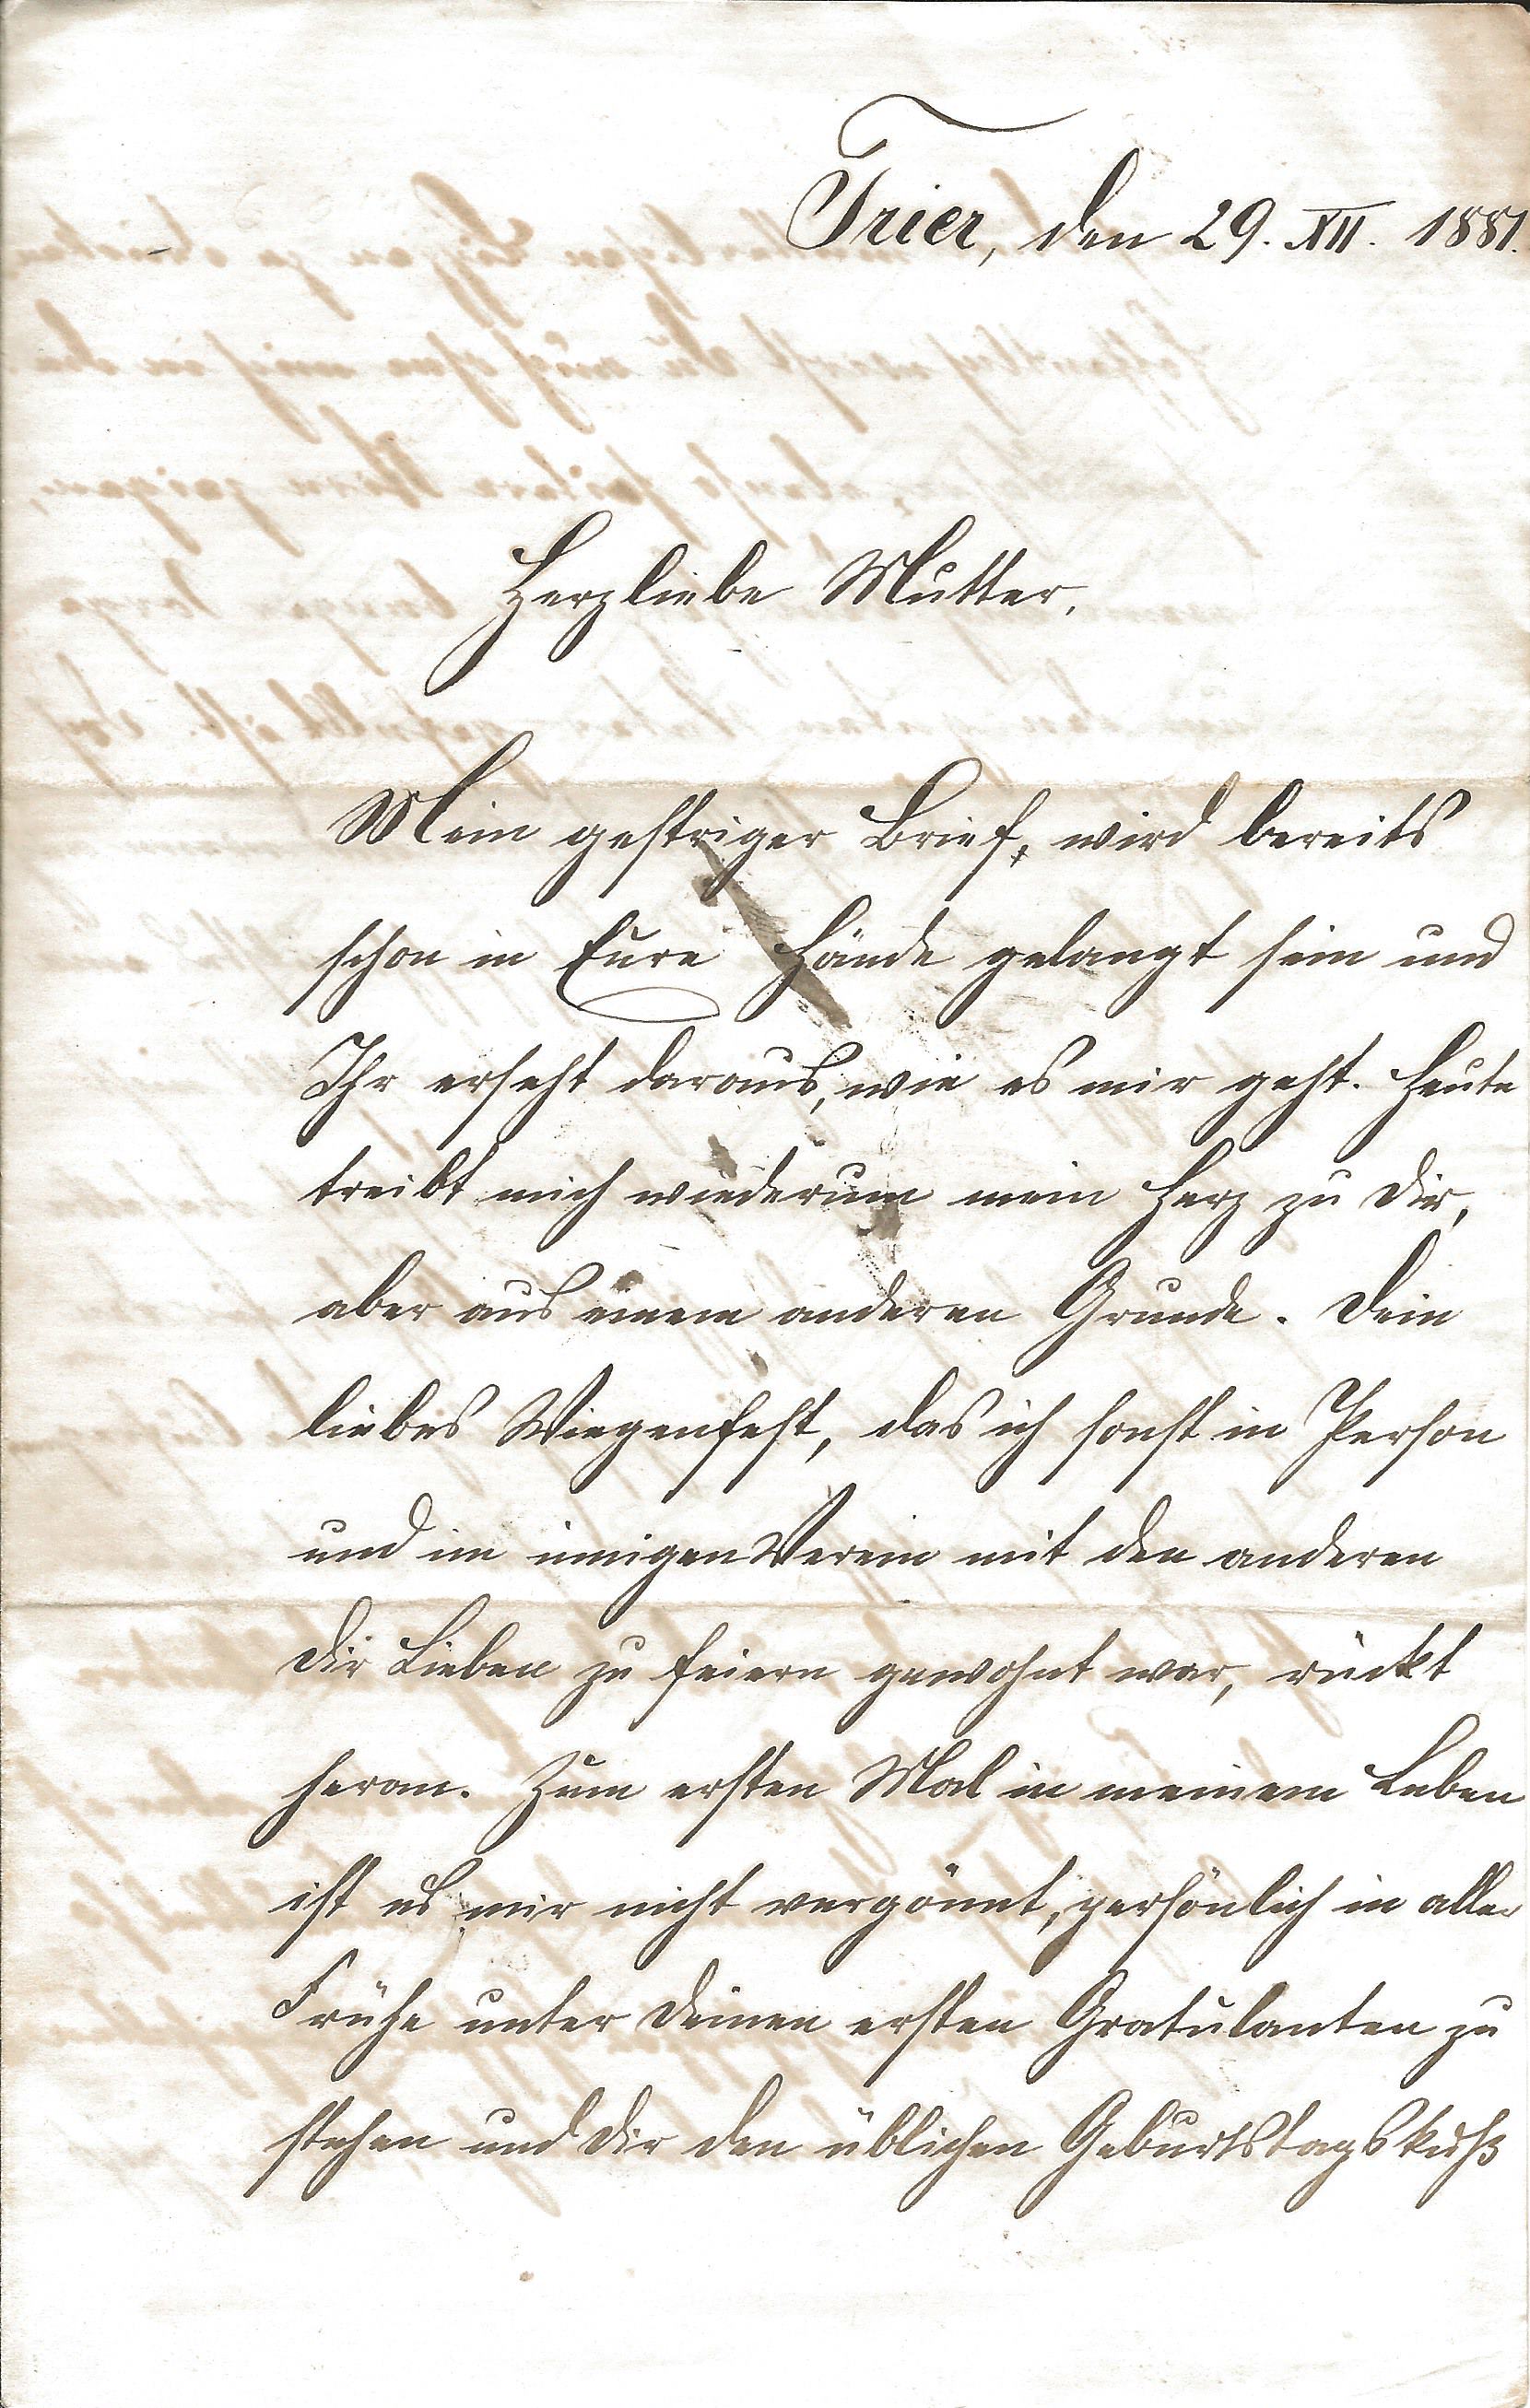 Trier, den 29. XII. 1881.
Herzliebe Mutter.
Mein gestriger Brief, wird bereits
schon in Eure Hände gelangt sein und
Ihr erseht daraus, wie es mir geht. Heute
treibt mich wiederum mein Herz zu Dir,
aber aus einem anderen Grunde. Dein
liebes Wiegenfest, das ich sonst in Person
und im innigen Verein mit den anderen
Dir Lieben zu feiern gewohnt war, rückt
heran. Zum ersten Mal in meinem Leben
ist es mir nicht vergönnt, persönlich in aller
Frühe unter Deinen ersten Gratulanten zu
stehen und Dir den üblichen Geburtstagskuß